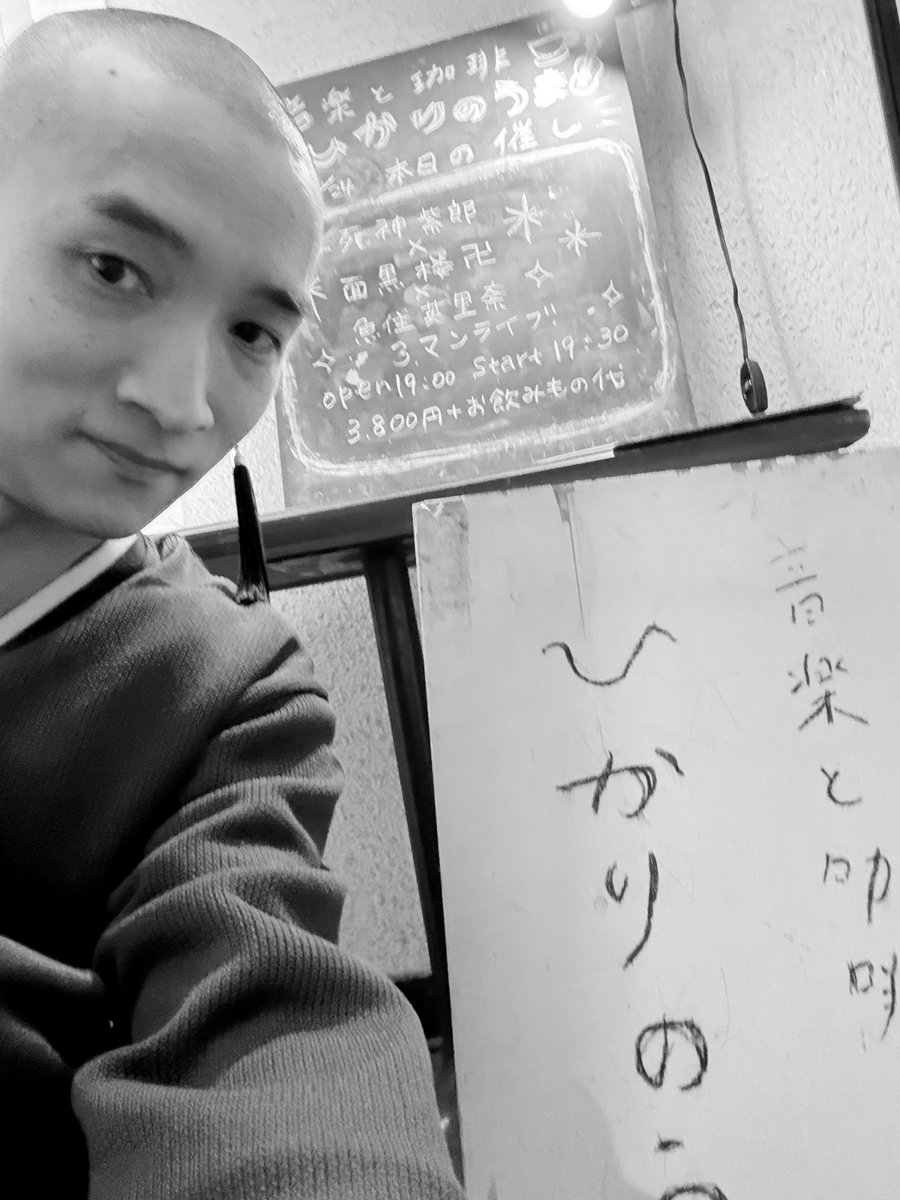 音楽と珈琲
ひかりのうま
本日の催し
死神紫郎
×
面黒楼卍
×
魚住英里奈
3.マンライブ!!
open19:00 Start 19:30
3.800円+お飲みもの代
音楽と珈琲
ひかりの